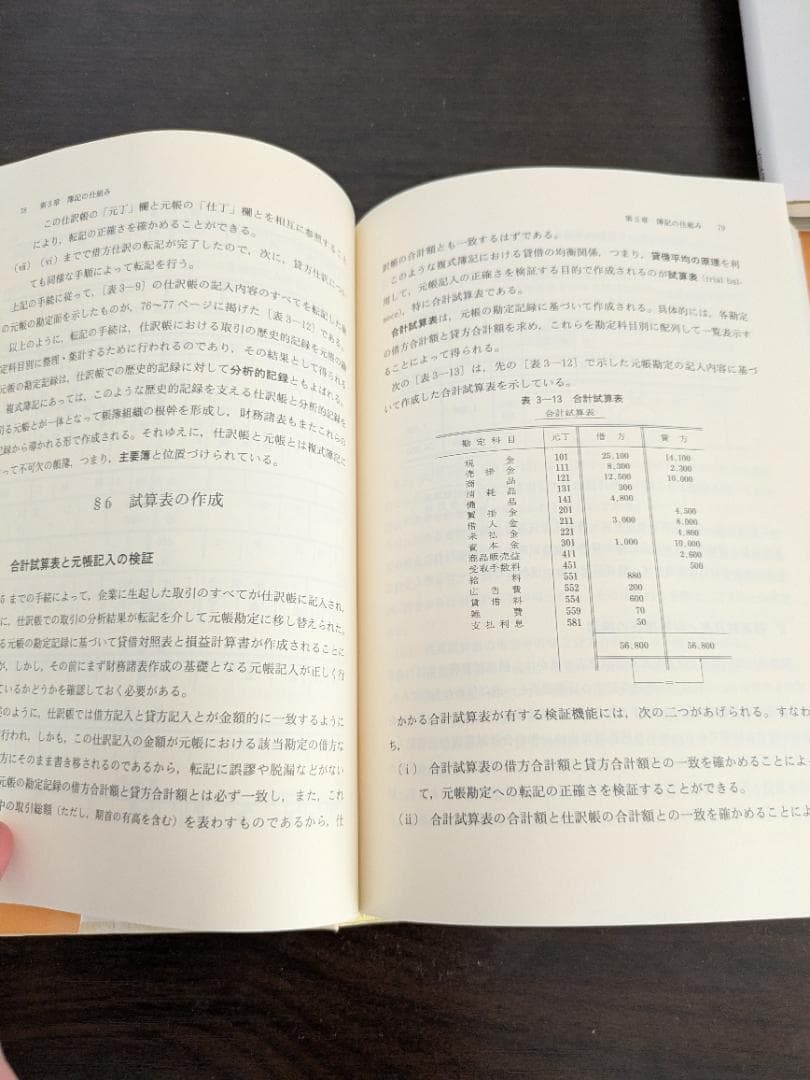 78　第3章　簿記の仕組み
この仕訳帳の「元丁」欄と元帳の「仕丁」欄とを相互に参照すること
により，転記の正確さを確かめることができる。
(ⅶ) (ⅵ)までで借方仕訳の転記が完了したので，次に，貸方仕訳につい
ても同様な手順によって転記を行う。
上記の手続に従って，〔表3―9〕の仕訳帳の記入内容のすべてを転記した
の元帳の勘定面を示したものが，76～77ページに掲げた〔表3―12〕である。
以上のように，転記の手続は，仕訳帳における取引の歴史的記録を元帳の
定科目別に整理・集計するために行われるのであり，その結果として得られる
元帳の勘定記録は，仕訳帳での歴史的記録に対して分析的記録ともよばれる。
複式簿記にあっては，このような歴史的記録を支える仕訳帳と分析的記録を
司る元帳とが一体となって帳簿組織の根幹を形成し，財務諸表もまたこれらの
記録から導かれる形で作成される。それゆえに，仕訳帳と元帳とは複式簿記に
って不可欠の帳簿，つまり，主要簿と位置づけられている。
§6　試算表の作成
合計試算表と元帳記入の検証
§5 までの手続によって，企業に生起した取引のすべてが仕訳帳に記入され，
に，仕訳帳での取引の分析結果が転記を介して元帳勘定に移し替えられた。
る元帳の勘定記録に基づいて貸借対照表と損益計算書が作成されることに
が，しかし，その前にまず財務諸表作成の基礎となる元帳記入が正しく行
ているかどうかを確認しておく必要がある。
のように，仕訳帳では借方記入と貸方記入とが金額的に一致するように
行われ，しかも，この仕訳記入の金額が元帳における該当勘定の借方な
方にそのまま書き移されるのであるから，転記に誤謬や脱漏などがない
元帳の勘定記録の借方合計額と貸方合計額とは必ず一致し，また，これ
中の取引総額(ただし，期首の有高を含む)を表わすものであるから，仕
第3章　簿記の仕組み　79
訳帳の合計額とも一致するはずである。
このような複式簿記における貸借の均衡関係，つまり，貸借平均の原理を利
用して，元帳記入の正確さを検証する目的で作成されるのが試算表(trial bal-
ance)，特に合計試算表である。
合計試算表は，元帳の勘定記録に基づいて作成される。具体的には，各勘定
の借方合計額と貸方合計額を求め，これらを勘定科目別に配列して一覧表示す
ることによって得られる。
次の〔表3―13〕は，先の〔表3―12〕で示した元帳勘定の記入内容に基づ
いて作成した合計試算表を示している。
表 3―13　合計試算表
合計試算表
勘定科目　元丁　借方　貸方
現金　101　25,100　14,100
売掛金　111　8,300　2,300
商品　121　12,500　10,000
消耗品　131　300
備品　141　4,800
買掛金　201　　4,500
借入金　211　3,000　8,000
未払金　221　　4,800
資本金　301　1,000　10,000
商品販売益　411　　2,600
受取手数料　451　　500
給料　551　880
広告費　552　200
賃借料　554　600
雑費　559　70
支払利息　581　50
56,800　56,800
かかる合計試算表が有する検証機能には，次の二つがあげられる。すなわ
ち，
(ⅰ)　合計試算表の借方合計額と貸方合計額との一致を確かめることによっ
て，元帳勘定への転記の正確さを検証することができる。
(ⅱ)　合計試算表の合計額と仕訳帳の合計額との一致を確かめることによ